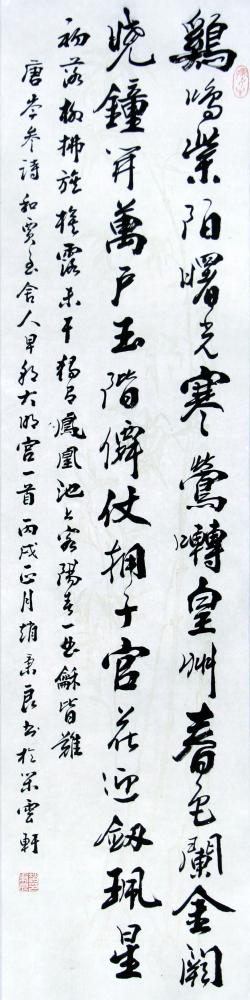 鷄鳴紫陌曙光寒鶯囀皇州春色闌金闕
曉鐘開萬户玉階僊仗擁千官花迎劍珮星
初落柳拂旌旗露未干獨有鳳凰池上客陽春一曲龢皆難
唐岑參詩和賈至舍人早朝大明宮一首丙戌正月趙秉良書於雲軒